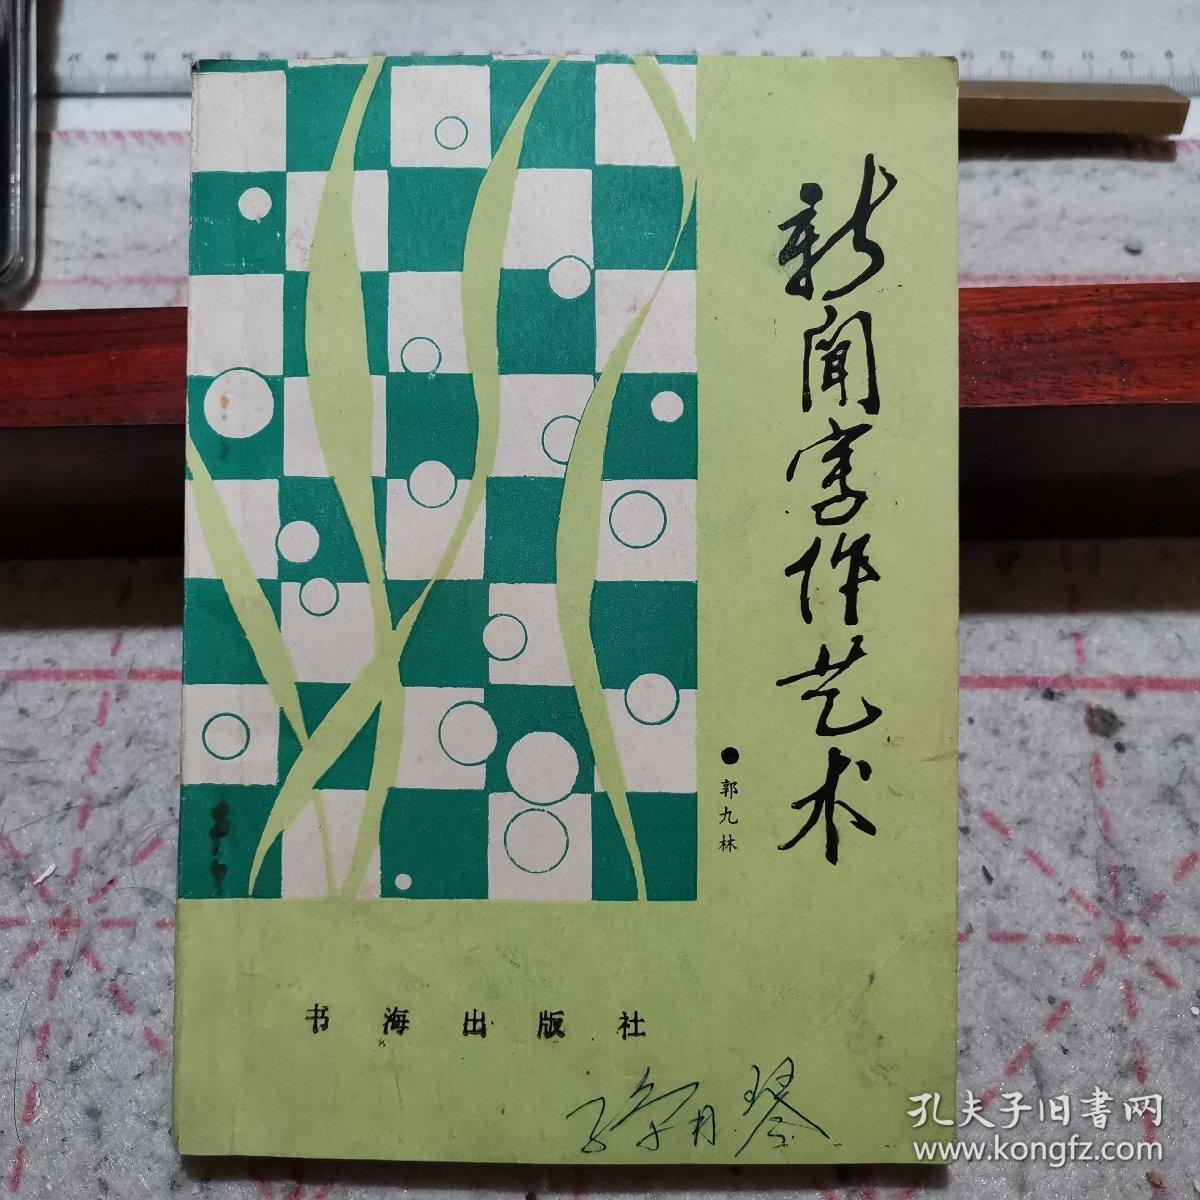 新闻写作艺术
●郭九林
书海出版社
孔夫子旧书网
www.kongfz.com